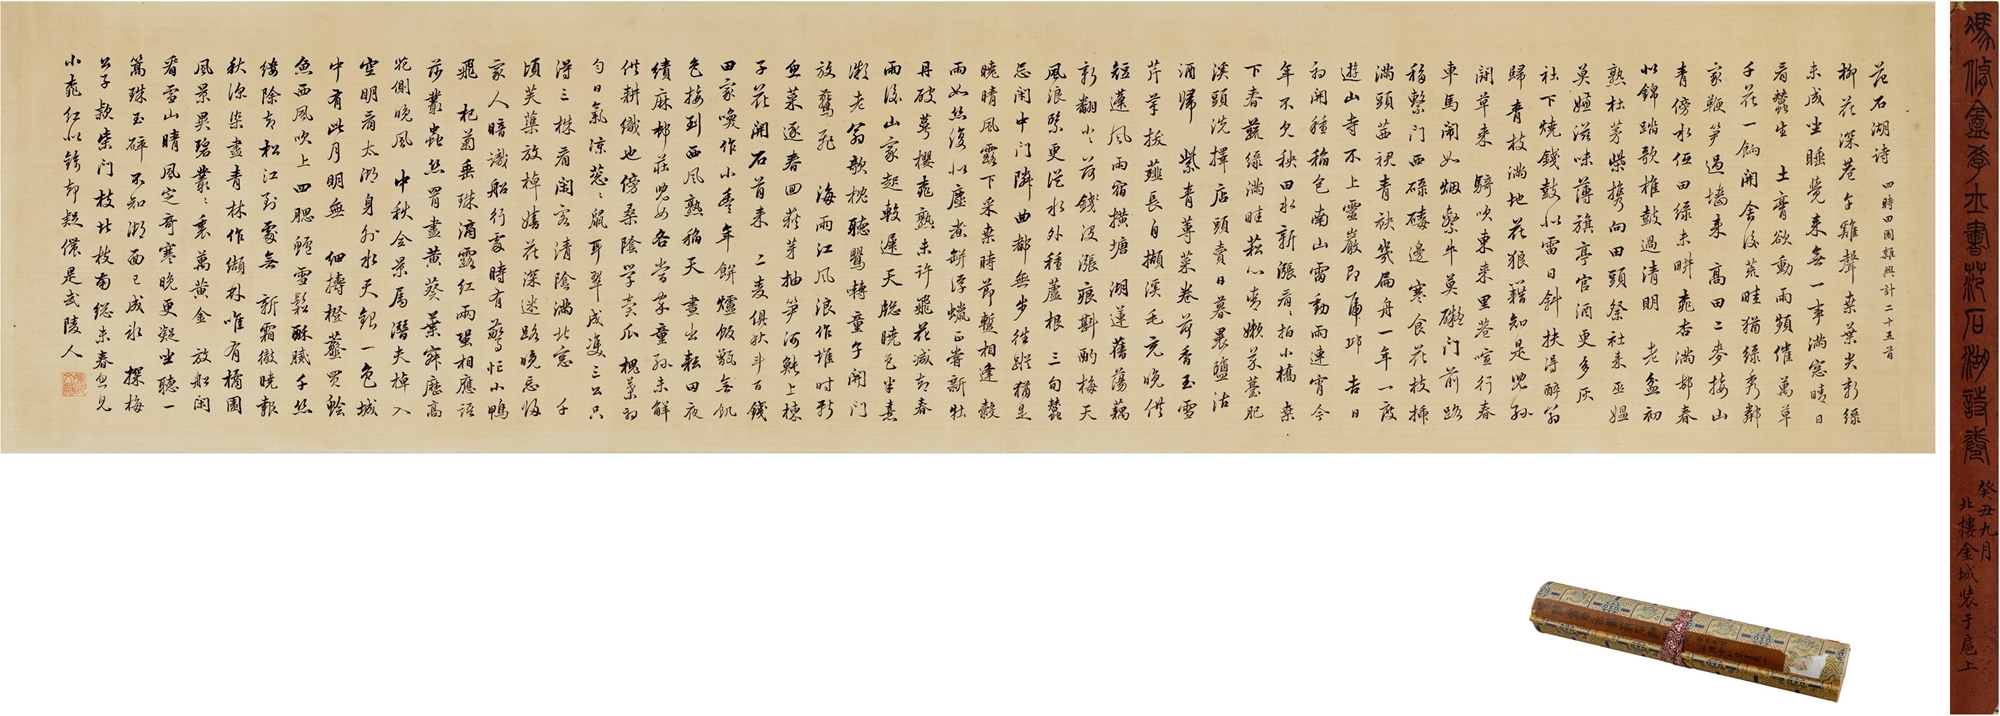 范石湖詩 四時田園雜興計二十五首
柳花深巷午雞聲桑葉尖新綠
未成坐睡覺來無一事滿窓晴日
看蠶生 土膏欲動雨頻催萬草
千花一餉開舍後荒畦猶綠秀鄰
家鞭笋過墻來 高田二麥接山
青傍水低田綠未畊桃杏滿邨春
似錦踏歌椎鼓過清明 老盆初
熟杜茅柴攜向田頭祭社來巫媼
莫嫌滋味薄旗亭官酒更多灰
社下燒錢鼓似雷日斜扶得醉翁
歸青枝滿地花狼藉知是兒孫
鬪草來 騎吹東來里巷喧行春
車馬鬧如烟繫牛莫礙門前路
移繫門西碌碡邊 寒食花枝插
滿頭茜裙青袂幾扁舟一年一度
遊山寺不上靈巖即虎邱 吉日
初開種稻包南山雷動雨連宵今
年不欠秧田水新漲看看拍小橋 桑
下春蔬綠滿畦菘心青嫩芥薹肥
溪頭洗擇店頭賣日暮裹鹽沽
酒歸 紫青蓴菜卷荷香玉雪
芹芽拔薤長自擷溪毛充晚供
短蓬風雨宿橫塘 湖蓮舊蕩藕
新翻小小荷錢沒漲痕斟酌梅天
風浪緊更從水外種蘆根 三旬蠶
忌閉中門鄰曲都無步往蹤猶是
曉晴風露下采桑時節暫相逢 穀
雨如絲復似塵煮缾浮蠟正嘗新牡
丹破萼櫻桃熟未許飛花減却春
雨後山家起較遲天窓曉色半熹
微老翁欹枕聽鶯囀童子開門
放鷰飛 海雨江風浪作堆時新
魚菜逐春回荻芽抽笋河魨上楝
子花開石首來 二麥俱秋斗百錢
田家喚作小豐年餅爐飯甑無飢
色接到西風熟稻天 晝出耘田夜
績麻邨莊兒女各當家童孫未解
供耕織也傍桑陰學賣瓜 槐葉初
勻日氣涼蔥蔥鼠耳翠成雙三公只
得三株看閒客清陰滿北窓 千
頃芙蕖放棹嬉花深迷路晚忘歸
家人暗識船行處時有驚忙小鴨
飛 杞菊垂珠滴露紅兩蛩相應語
莎叢蟲絲罥盡黃葵葉寂歷高
花側晚風 中秋全景屬潛夫棹入
空明看太湖身外水天銀一色城
中有此月明無 細擣橙薺買鱠
魚西風吹上四腮鱸雪鬆酥膩千絲
縷除却松江到處無 新霜徹曉報
秋深染盡青林作纈林唯有橘園
風景異碧叢叢裏萬黃金 放船閒
看雪山晴風定奇寒晚更凝坐聽一
篙珠玉碎不知湖面已成冰 探梅
公子款柴門枝北枝南總未春忽見
小桃紅似錦却疑儂是武陵人
馮脩盦孝亷書范石湖詩卷
癸丑九月
北樓金城裝于扈上